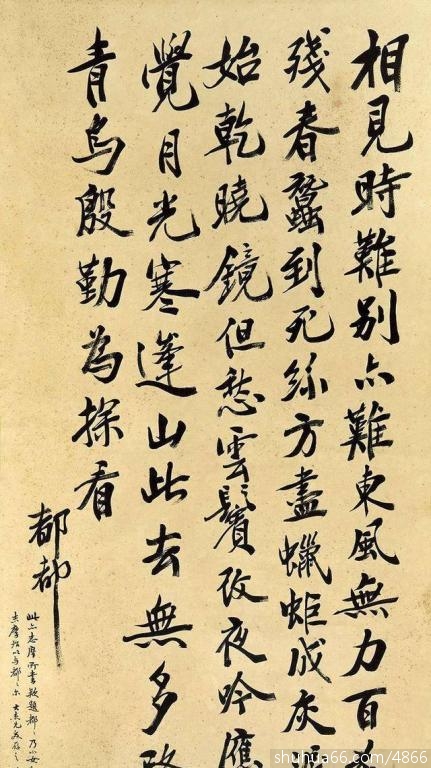 相見時難別亦難東風無力百
殘春蠶到死絲方盡蠟炬成灰
始乾曉鏡但愁雲鬢改夜吟應
覺月光寒蓬山此去無多路
青鳥殷勤為探看
都都
此亦志摩所書款題都〻乃小
shuhua66.com/4866